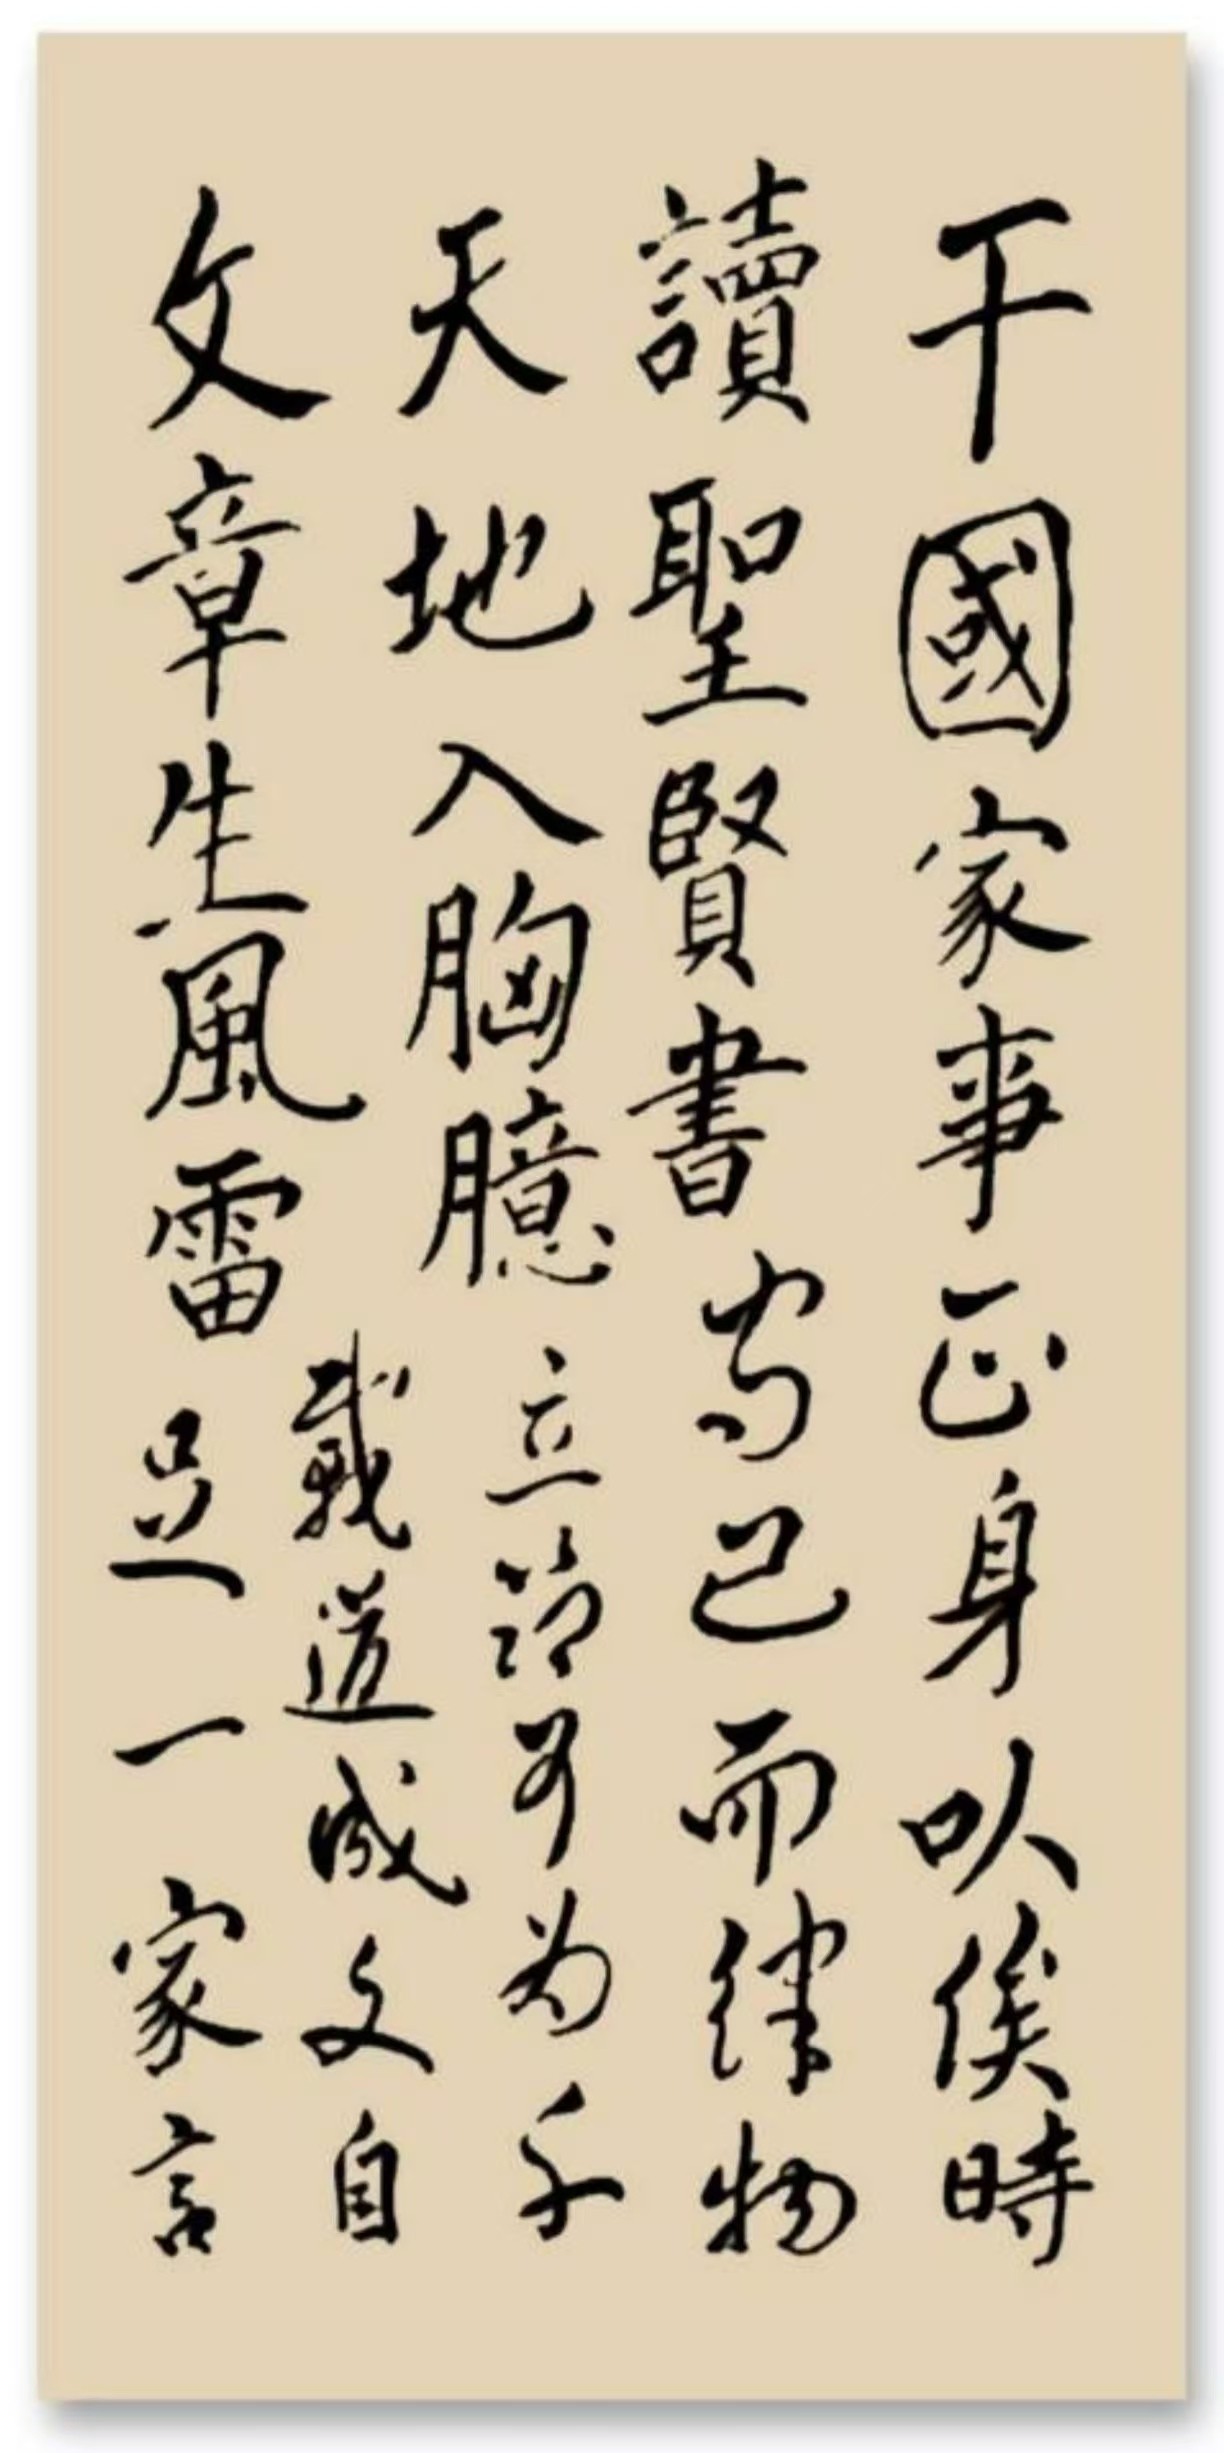 干國家事正身以俟時
讀聖賢書守己而律物
天地入胸臆立節可为千
載道成文自
文章生風雷足一家言